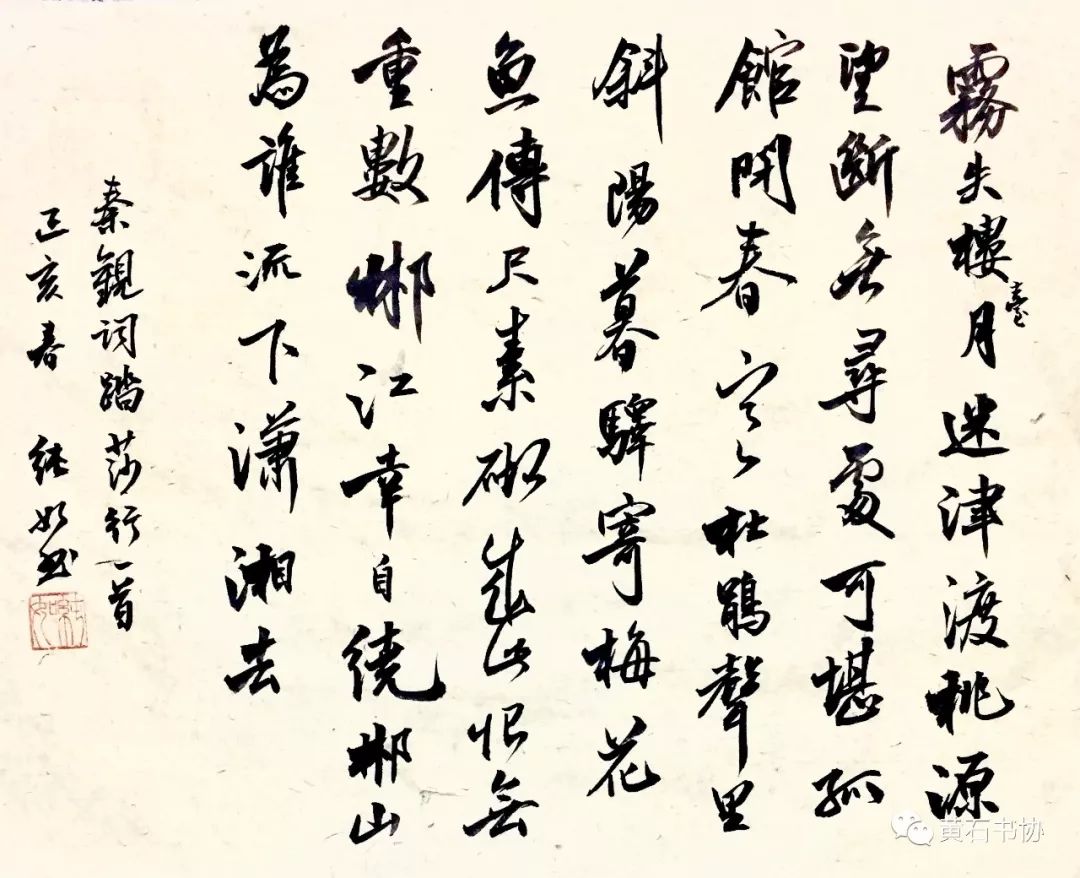 霧失樓臺月迷津渡桃源
望斷無尋處可堪孤
館閉春寒杜鵑聲里
斜陽暮驛寄梅花
魚傳尺素砌成此恨無
重數郴江幸自繞郴山
為誰流下潇湘去
秦觀词踏莎行一首
己亥春 如书
黄石书协